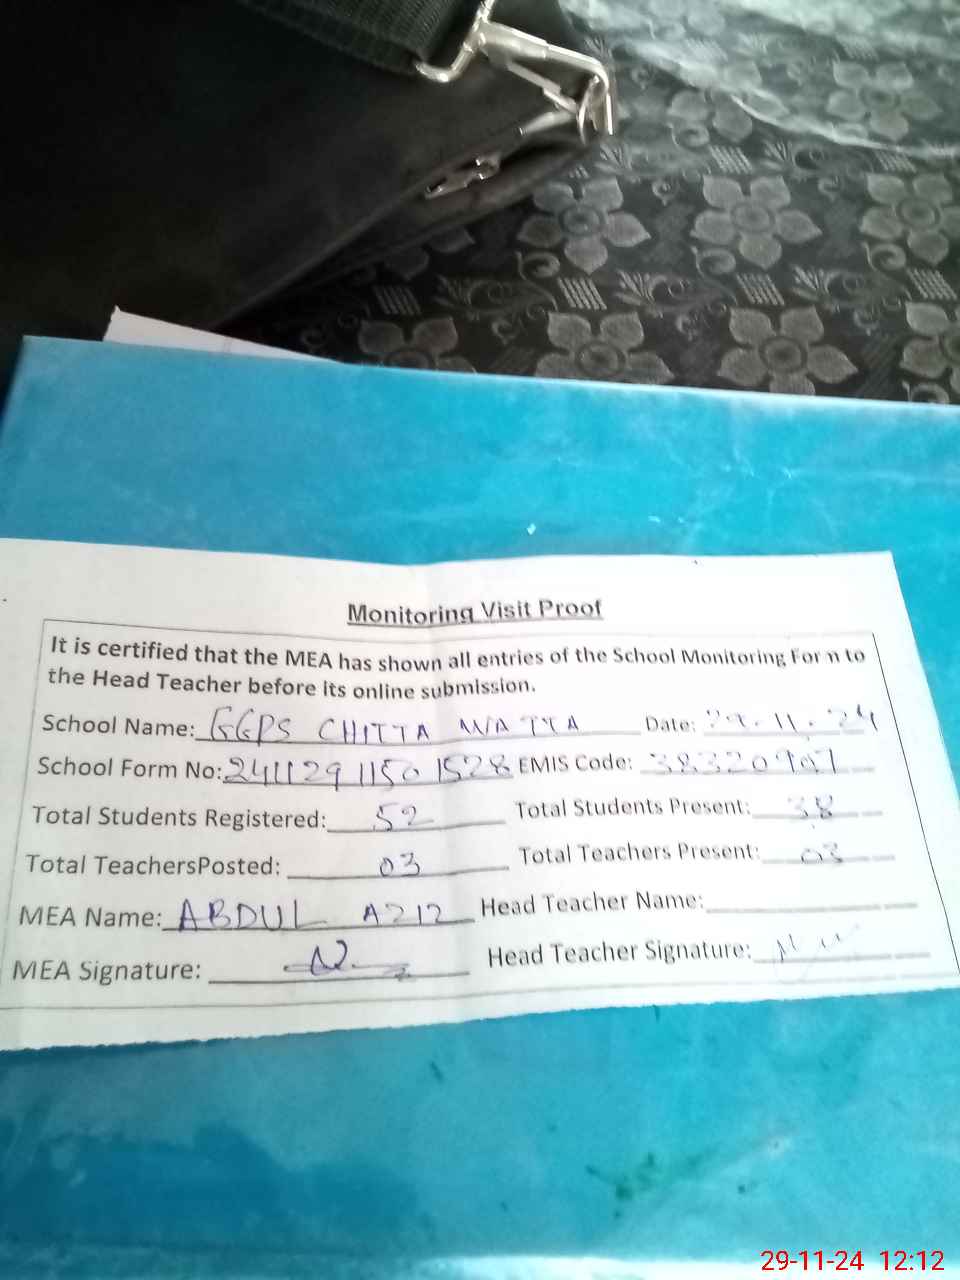 Monitoring Visit Proof
It is certified that the MEA has shown all entries of the School Monitoring Form to
the Head Teacher before its online submission.
School Name: GGPS CHITTA WATTA Date: 29.11.24
School Form No: 241129 1150 1528 EMIS Code: 38320907
Total Students Registered: 52 Total Students Present: 38
Total TeachersPosted: 03 Total Teachers Present: 03
MEA Name: ABDUL AZIZ Head Teacher Name:
MEA Signature: Head Teacher Signature:
29-11-24 12:12